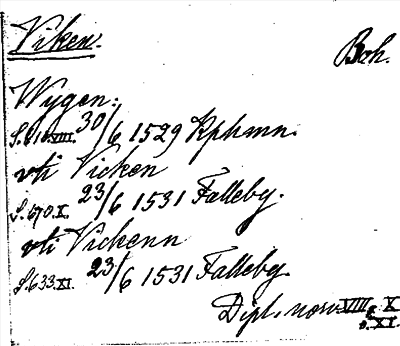 Viken.
Boh.
Wygen:
S. 610. VIII. 30/6 1529 Kphmn.
vti Vicken
S. 670. X. 23/6 1531 Falleby.
vti Vickenn
S. 633. XI. 23/6 1531 Falleby.
Dipl. norv. VIII, X
o. XI.